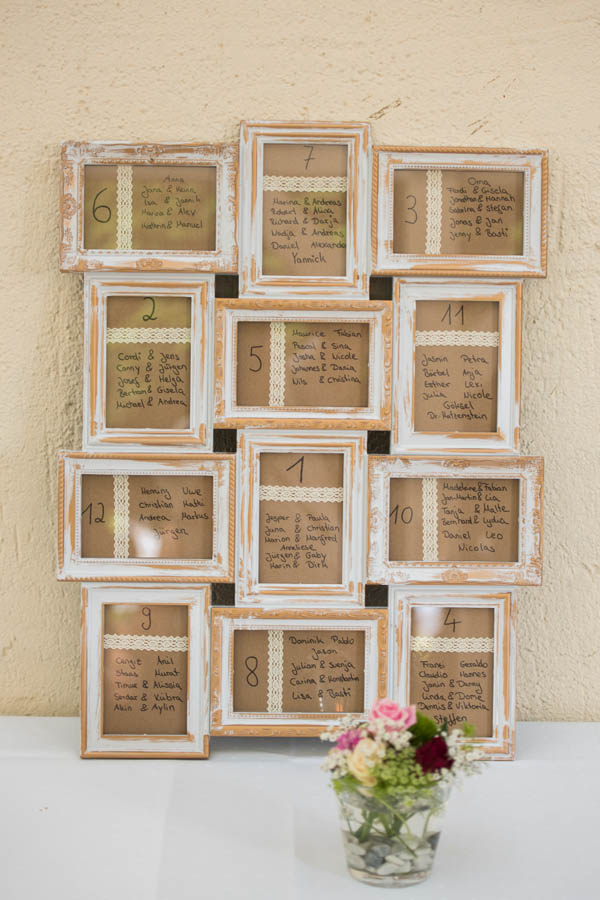 6
Anna
Jana & Henri
Isa & Jannik
Marisa & Alex
Kathrin & Manuel
7
Marina & Andreas
Robert & Alixa
Richard & Darja
Nadja & Andreas
Daniel Alexander
Yannick
3
Oma
Ferdi & Gisela
Jonathan & Hannah
Sabrina & Stefan
Jonas & Jan
Jenny & Basti
2
Cordi & Jens
Conny & Jürgen
Josef & Helga
Bertram & Gisela
Michael & Andrea
5
Maurice Fabian
Pascal & Sina
Jascha & Nicole
Johannes & Daria
Nils & Christina
11
Jasmin Petra
Bärbel Anja
Esther Lexi
Julia Nicole
Göksel
Dr. Kaltenstein
12
Henning Uwe
Christian Maiki
Andrea Markus
Jürgen
1
Jasper & Paula
Jana & Christian
Marion & Manfred
Anneliese
Jürgen & Gaby
Marin & Dirk
10
Madeleine & Fabian
Jan-Martin & Lia
Tanja & Malte
Bernhard & Lydia
Daniel Leo
Nicolas
9
Cengit Anil
Staas Murat
Timur & Alissia
Serdar & Kübra
Akin & Aylin
8
Dominik Pablo
Jason
Julian & Svenja
Carina & Konstantin
Lisa & Basti
4
Franzi Geraldo
Claudio Hannes
Janin & Danny
Linda & Dome
Dennis & Viktoria
Steffen